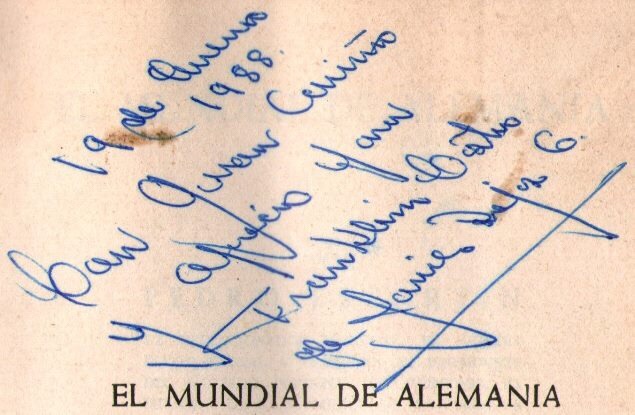 19 de Enero
1988.
Con Gran Cariño
y aprecio para
Franklin Castro
de Javier Rojas G.
EL MUNDIAL DE ALEMANIA